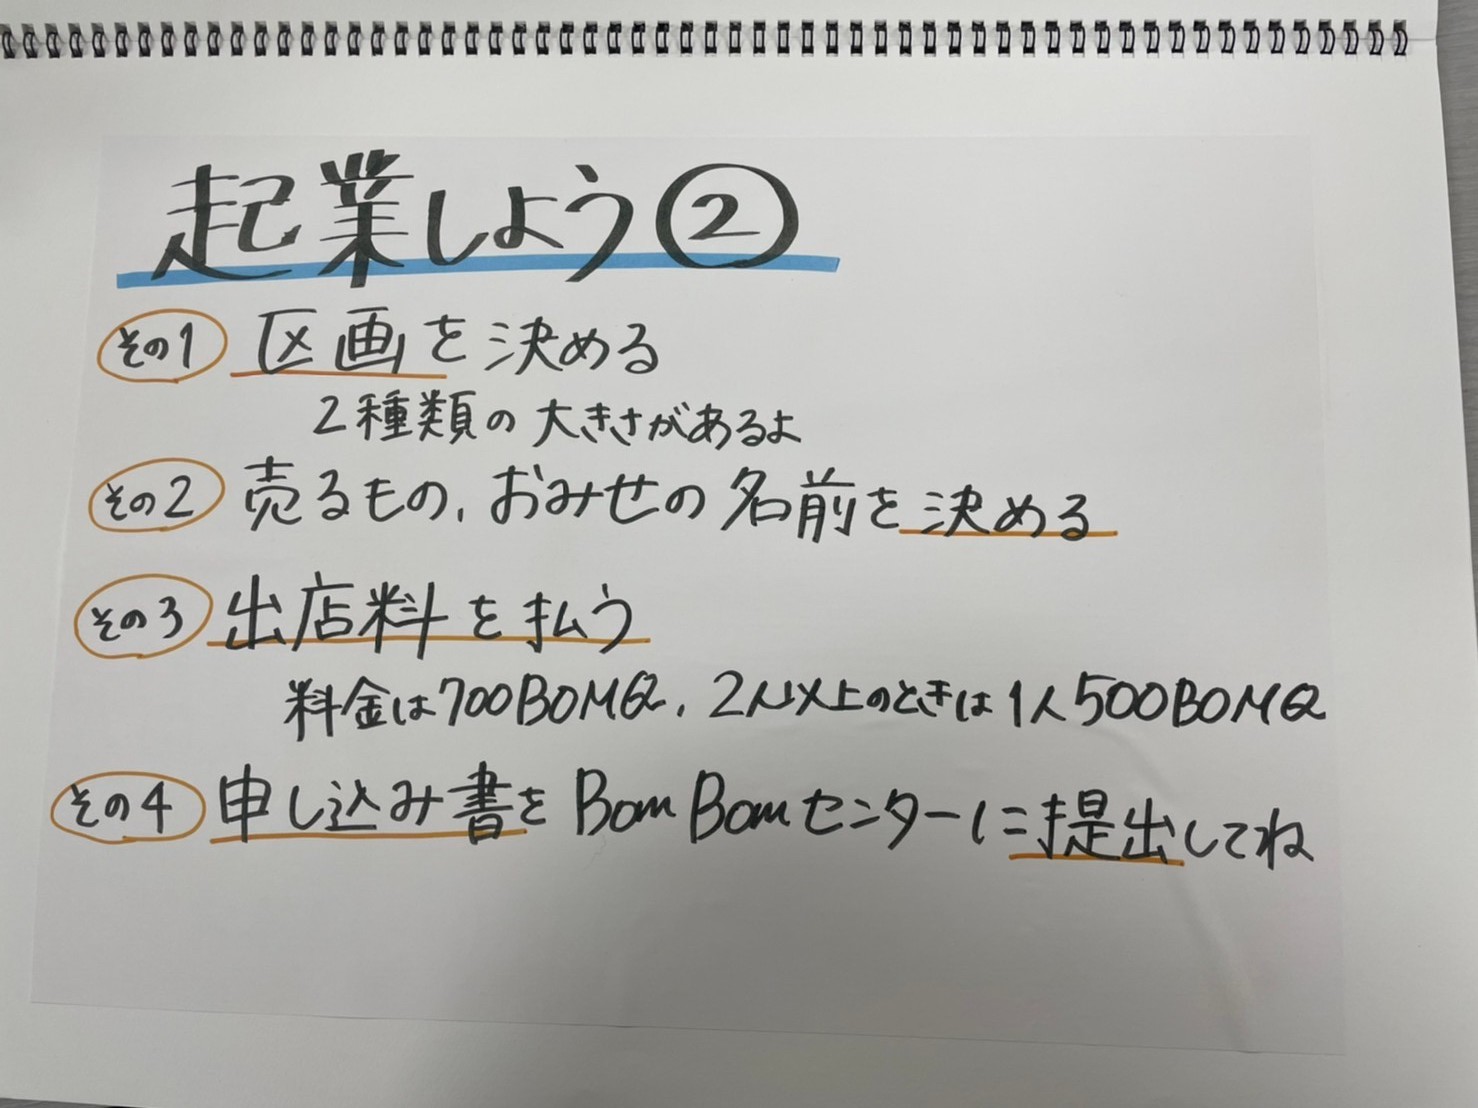 起業しよう②
その1 区画を決める
2種類の大きさがあるよ
その2 売るもの、おみせの名前を決める
その3 出店料を払う
料金は700BOMQ、2人以上のときは1人500BOMQ
その4 申し込み書をBomBomセンターに提出してね